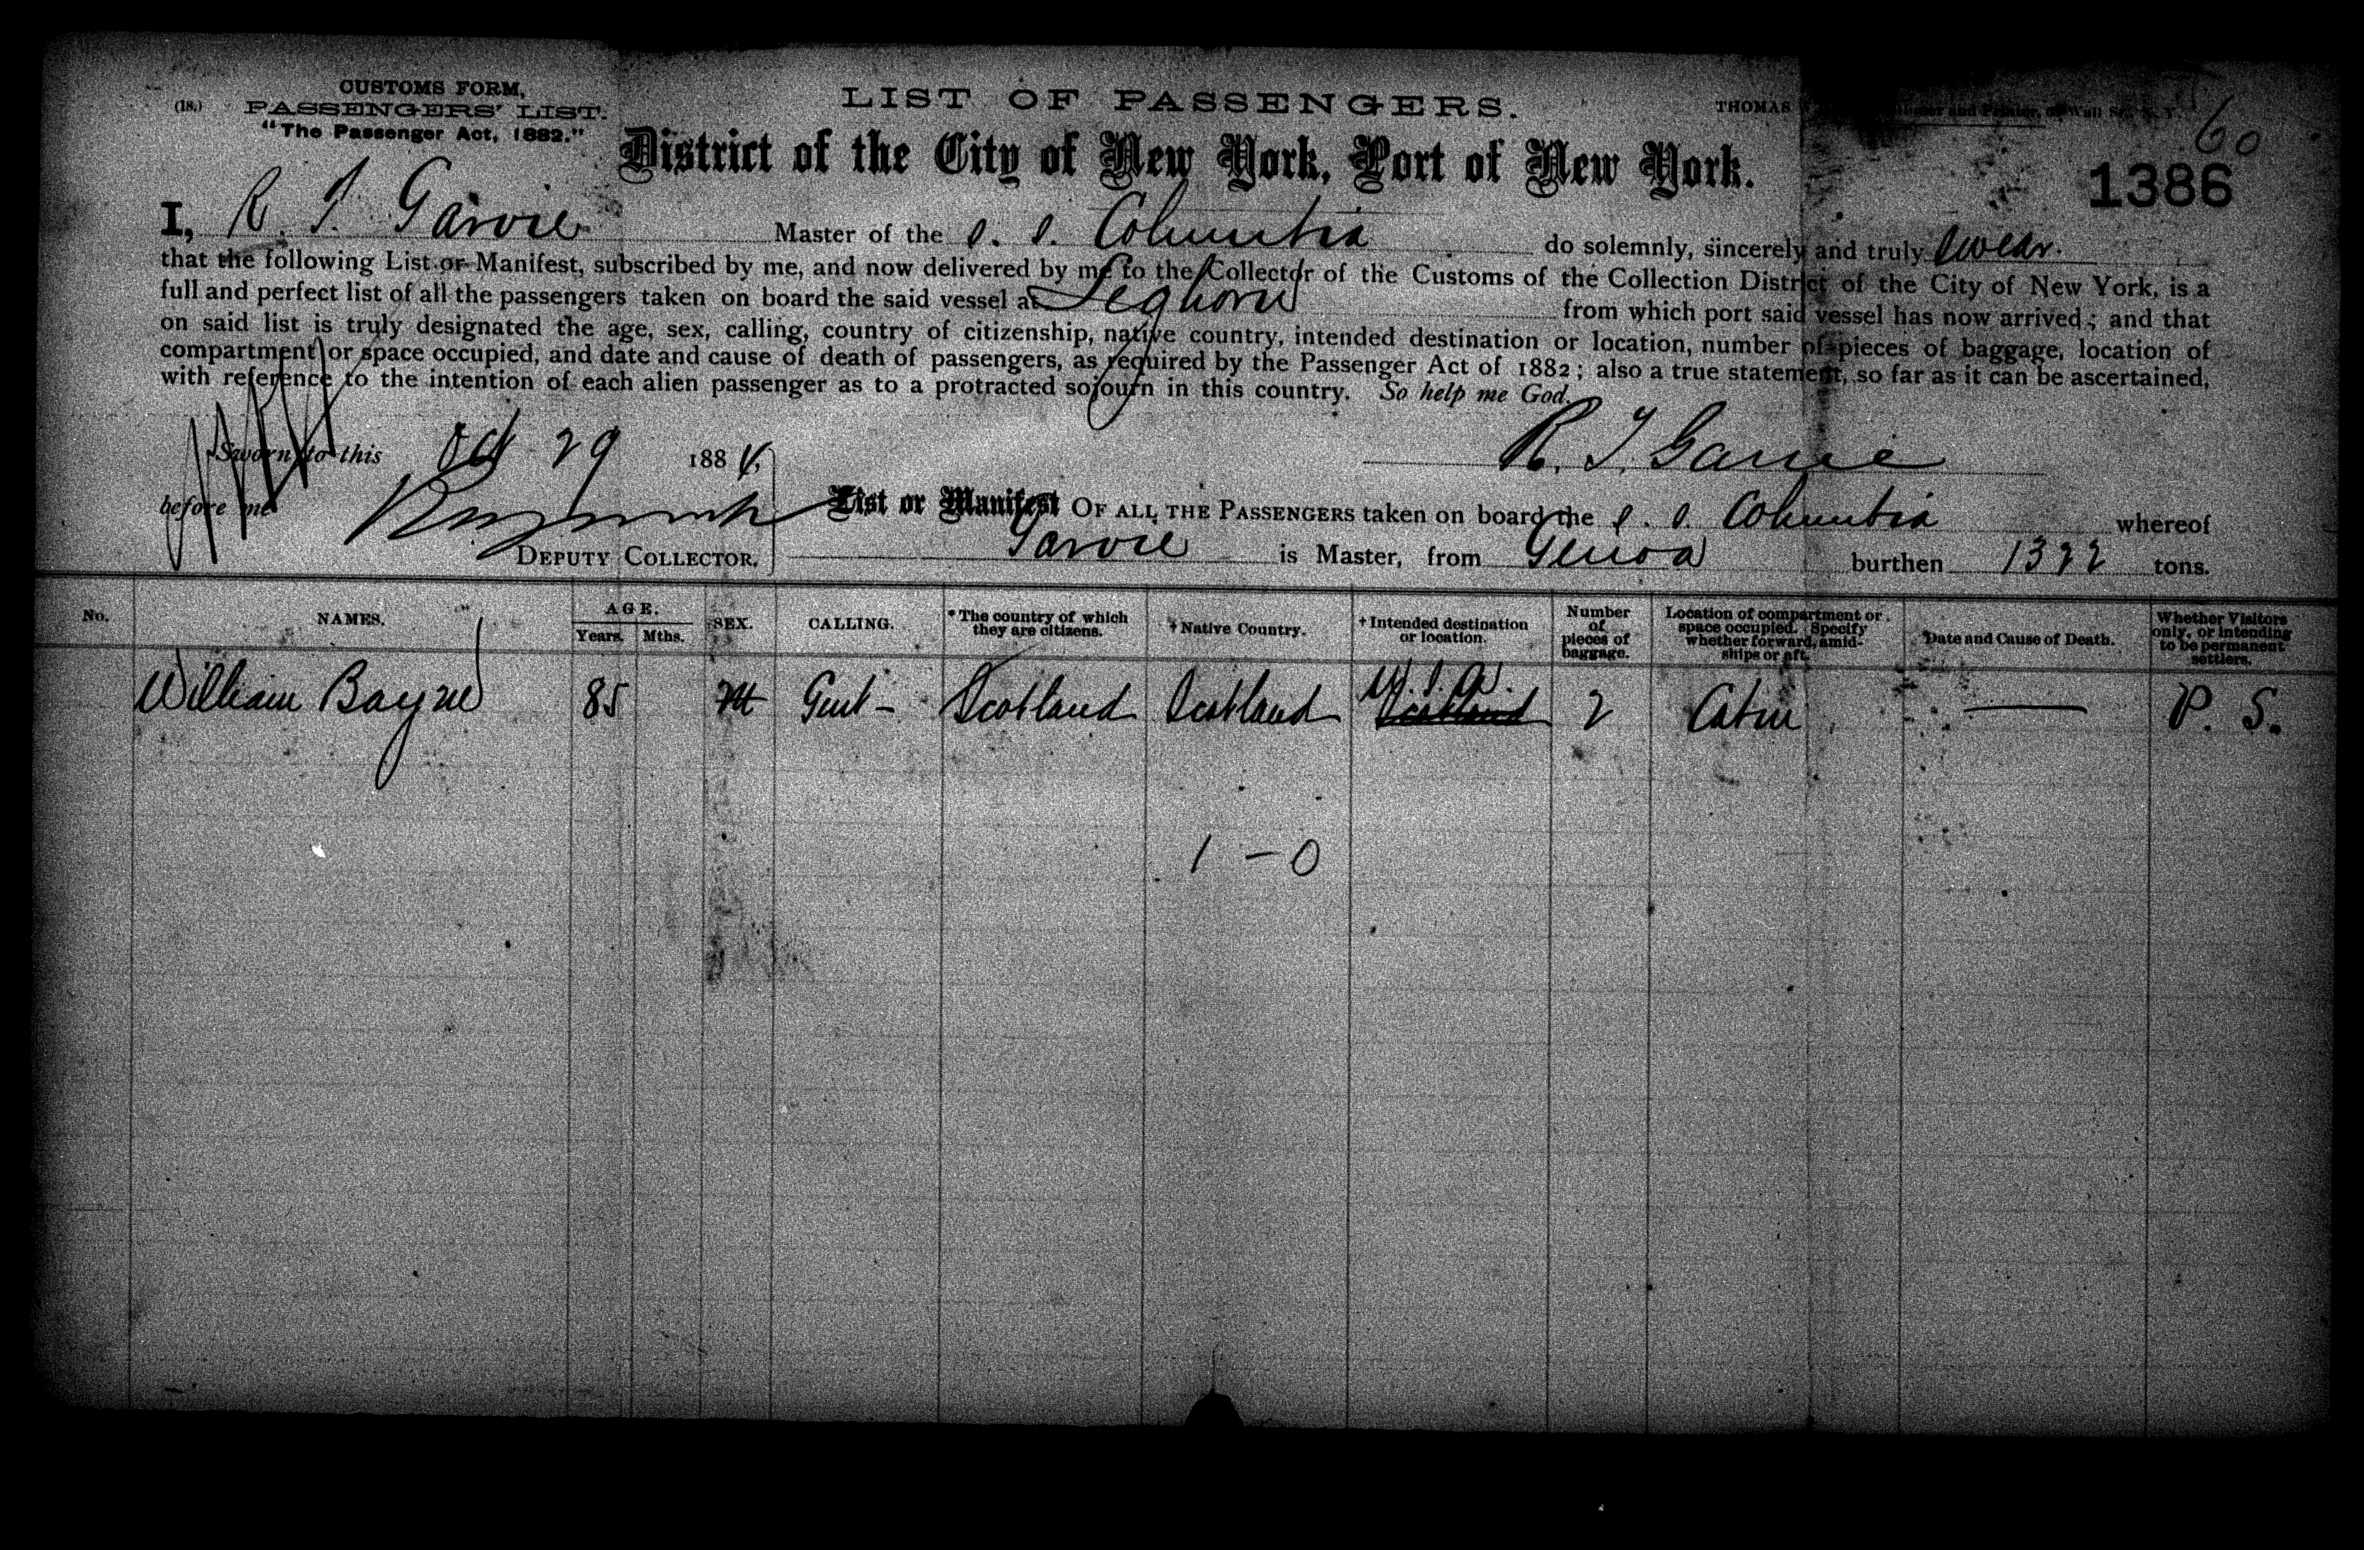 CUSTOMS FORM,
(18.) PASSENGERS' LIST.
"The Passenger Act, 1882."
LIST OF PASSENGERS.
THOMAS and Printer, Wall St., N. Y.
60
District of the City of New York, Port of New York.
1386
I, R. T. Garvie Master of the s. s. Columbia do solemnly, sincerely and truly swear
that the following List or Manifest, subscribed by me, and now delivered by me to the Collector of the Customs of the Collection District of the City of New York, is a
full and perfect list of all the passengers taken on board the said vessel at Leghorn from which port said vessel has now arrived; and that
on said list is truly designated the age, sex, calling, country of citizenship, native country, intended destination or location, number of pieces of baggage, location of
compartment or space occupied, and date and cause of death of passengers, as required by the Passenger Act of 1882; also a true statement, so far as it can be ascertained,
with reference to the intention of each alien passenger as to a protracted sojourn in this country. So help me God.
Sworn to this Oct 29 1884,
R. T. Garvie
before me
DEPUTY COLLECTOR.
List or Manifest OF ALL THE PASSENGERS taken on board the s. s. Columbia whereof
Garvie is Master, from Genoa burthen 1322 tons.
No. NAMES. AGE. Years. Mths. SEX. CALLING. *The country of which they are citizens. †Native Country. †Intended destination or location. Number of pieces of baggage. Location of compartment or space occupied. Specify whether forward, amidships or aft. Date and Cause of Death. Whether Visitors only, or intending to be permanent settlers.
William Bayne 85 M Gent - Scotland Scotland U. S. A. Scotland 2 Cabin — P. S.
1 - 0